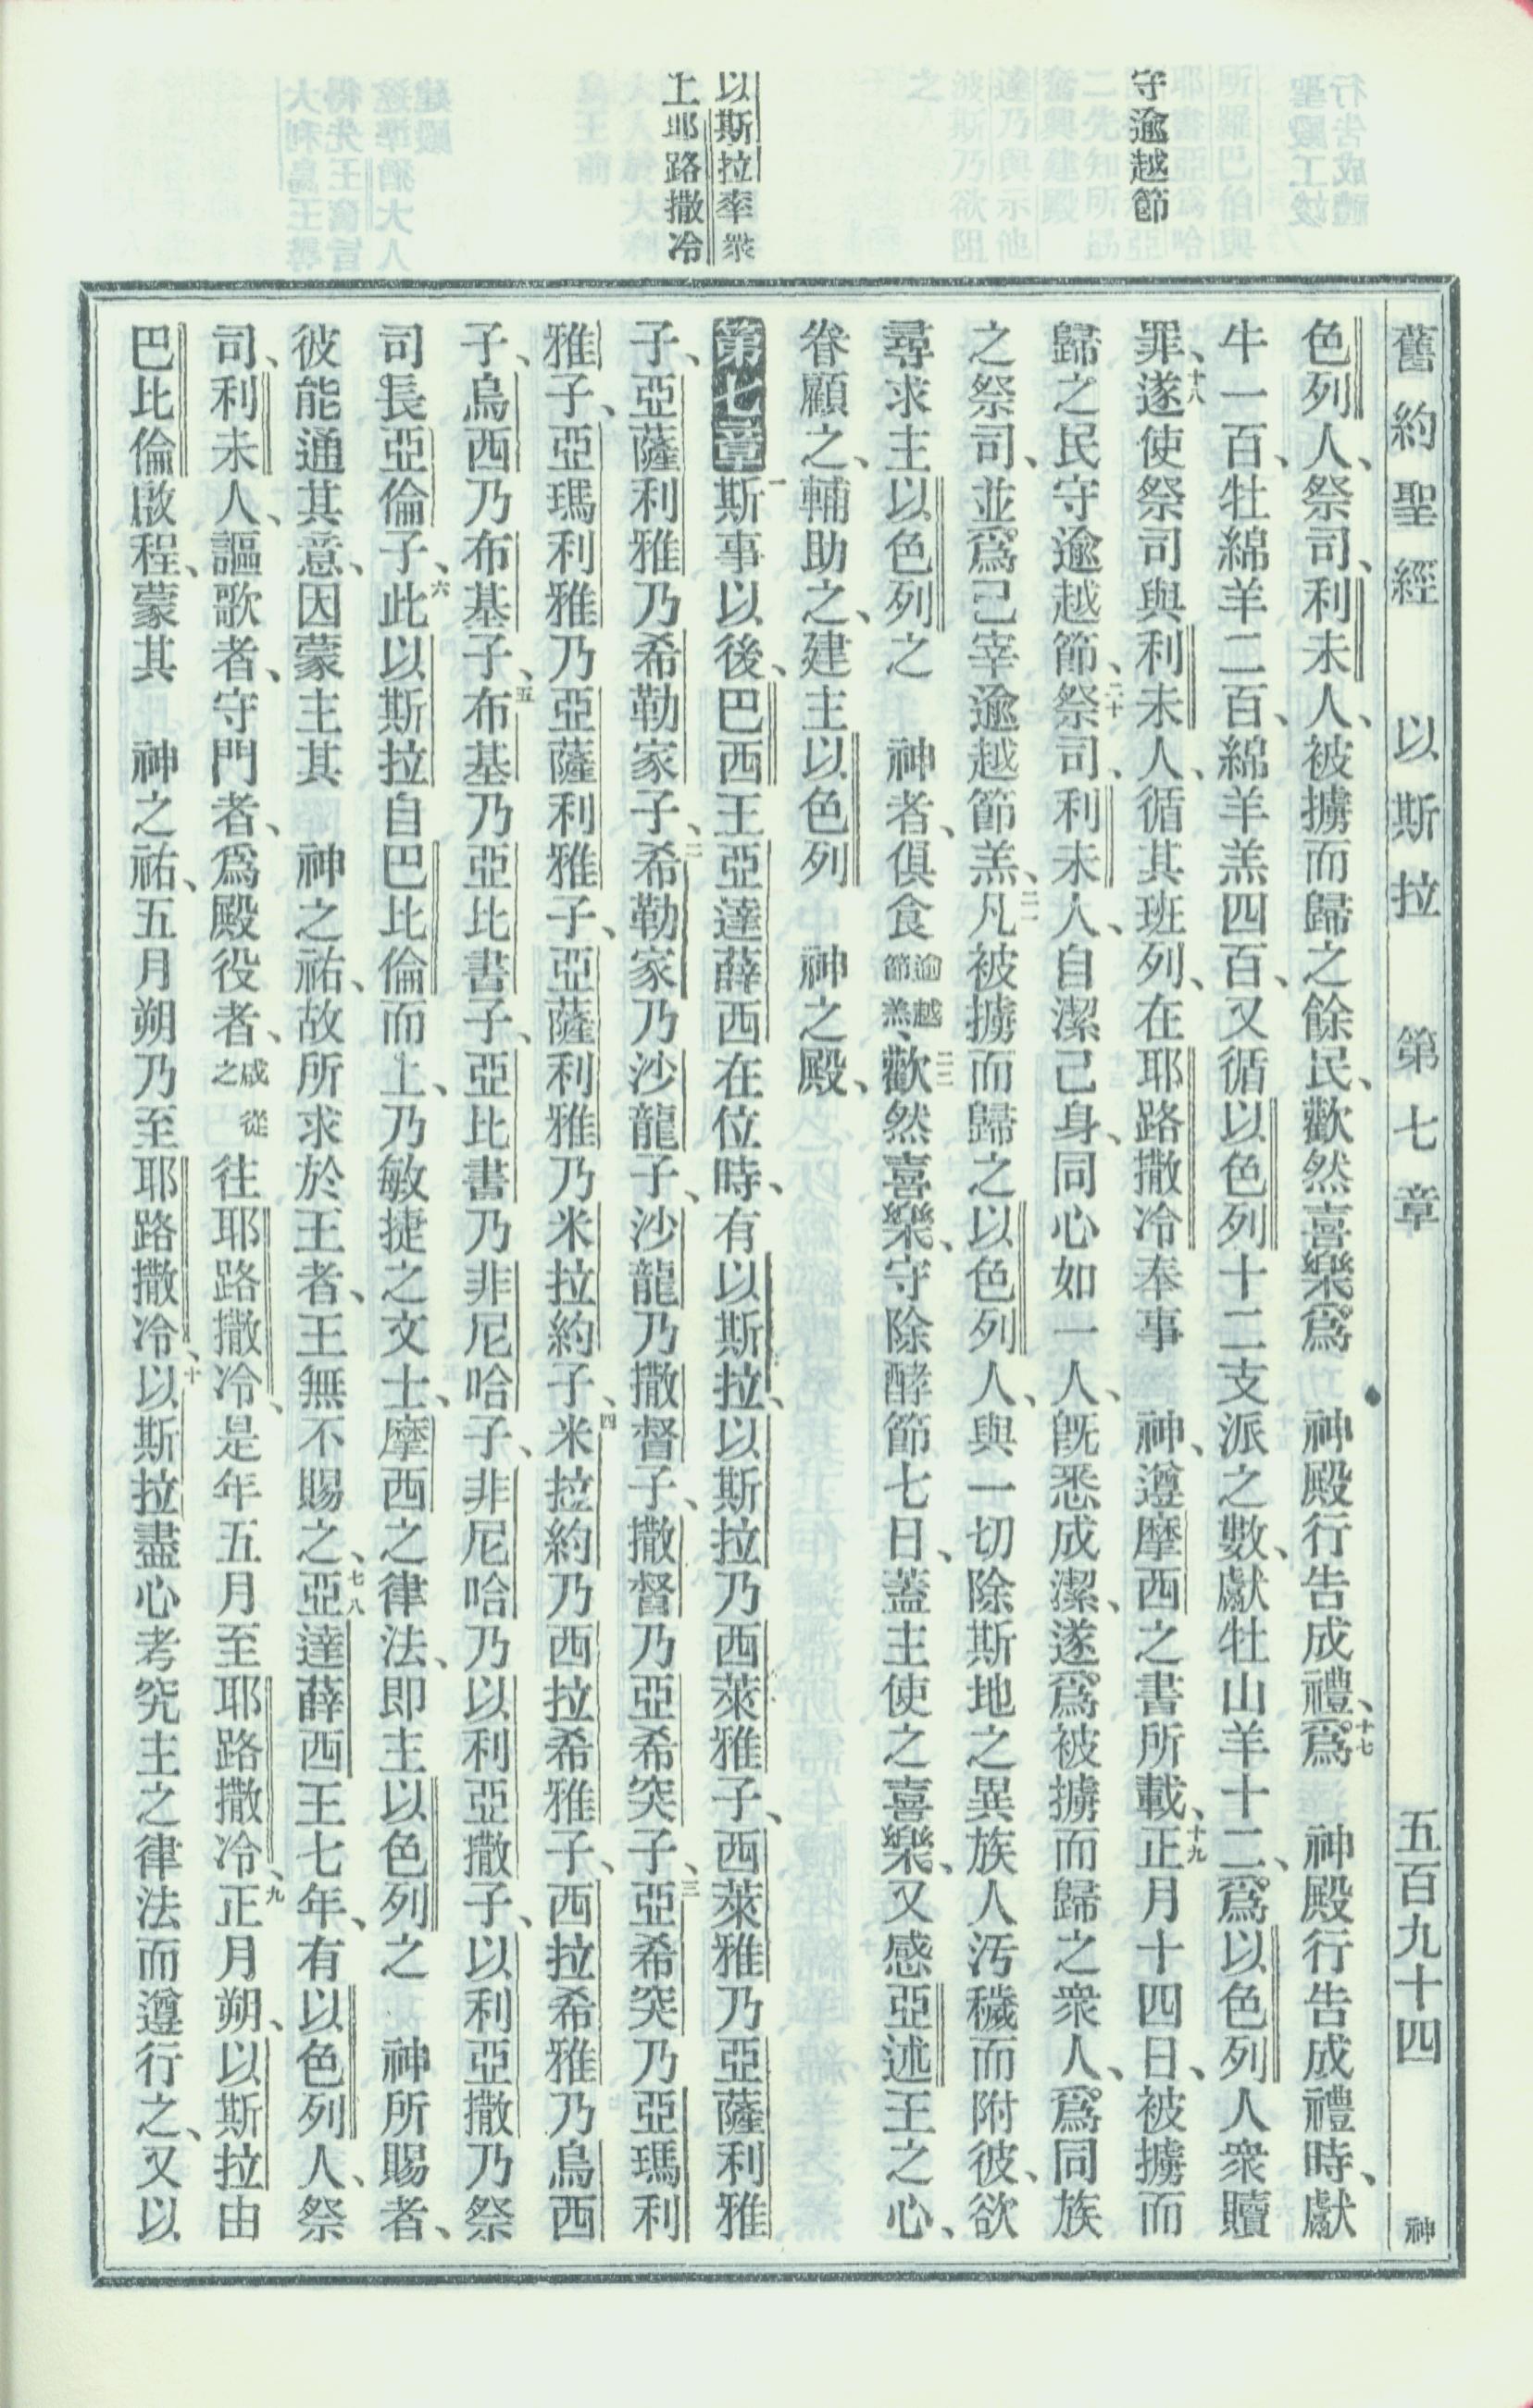 守逾越節
以斯拉率衆
上耶路撒冷
舊約聖經 以斯拉 第七章 五百九十四 神
色列人、祭司、利未人、被擄而歸之餘民、歡然喜樂爲 神殿行告成禮、十七爲 神殿行告成禮時、獻
牛一百、牡綿羊二百、綿羊羔四百、又循以色列十二支派之數、獻牡山羊十二、爲以色列人衆贖
罪、十八遂使祭司與利未人、循其班列、在耶路撒冷奉事 神、遵摩西之書所載、十九正月十四日、被擄而
歸之民守逾越節、二十祭司、利未人、自潔己身、同心如一人、旣悉成潔、遂爲被擄而歸之衆人、爲同族
之祭司、並爲己宰逾越節羔、二一凡被擄而歸之以色列人、與一切除斯地之異族人汚穢而附彼、欲
尋求主以色列之 神者、俱食逾越節羔、二二歡然喜樂、守除酵節七日、蓋主使之喜樂、又感亞述王之心、
眷顧之、輔助之、建主以色列 神之殿、
第七章 一斯事以後、巴西王亞達薛西在位時、有以斯拉、以斯拉乃西萊雅子、西萊雅乃亞薩利雅
子、亞薩利雅乃希勒家子、二希勒家乃沙龍子、沙龍乃撒督子、撒督乃亞希突子、三亞希突乃亞瑪利
雅子、亞瑪利雅乃亞薩利雅子、亞薩利雅乃米拉約子、四米拉約乃西拉希雅子、西拉希雅乃烏西
子、烏西乃布基子、五布基乃亞比書子、亞比書乃非尼哈子、非尼哈乃以利亞撒子、以利亞撒乃祭
司長亞倫子、六此以斯拉自巴比倫而上、乃敏捷之文士、摩西之律法、卽主以色列之 神所賜者、
彼能通其意、因蒙主其 神之祐、故所求於王者、王無不賜之、七八亞達薛西王七年、有以色列人、祭
司、利未人、謳歌者、守門者、爲殿役者、或從之往耶路撒冷、是年五月至耶路撒冷、九正月朔、以斯拉由
巴比倫啟程、蒙其 神之祐、五月朔乃至耶路撒冷、十以斯拉盡心考究主之律法而遵行之、又以